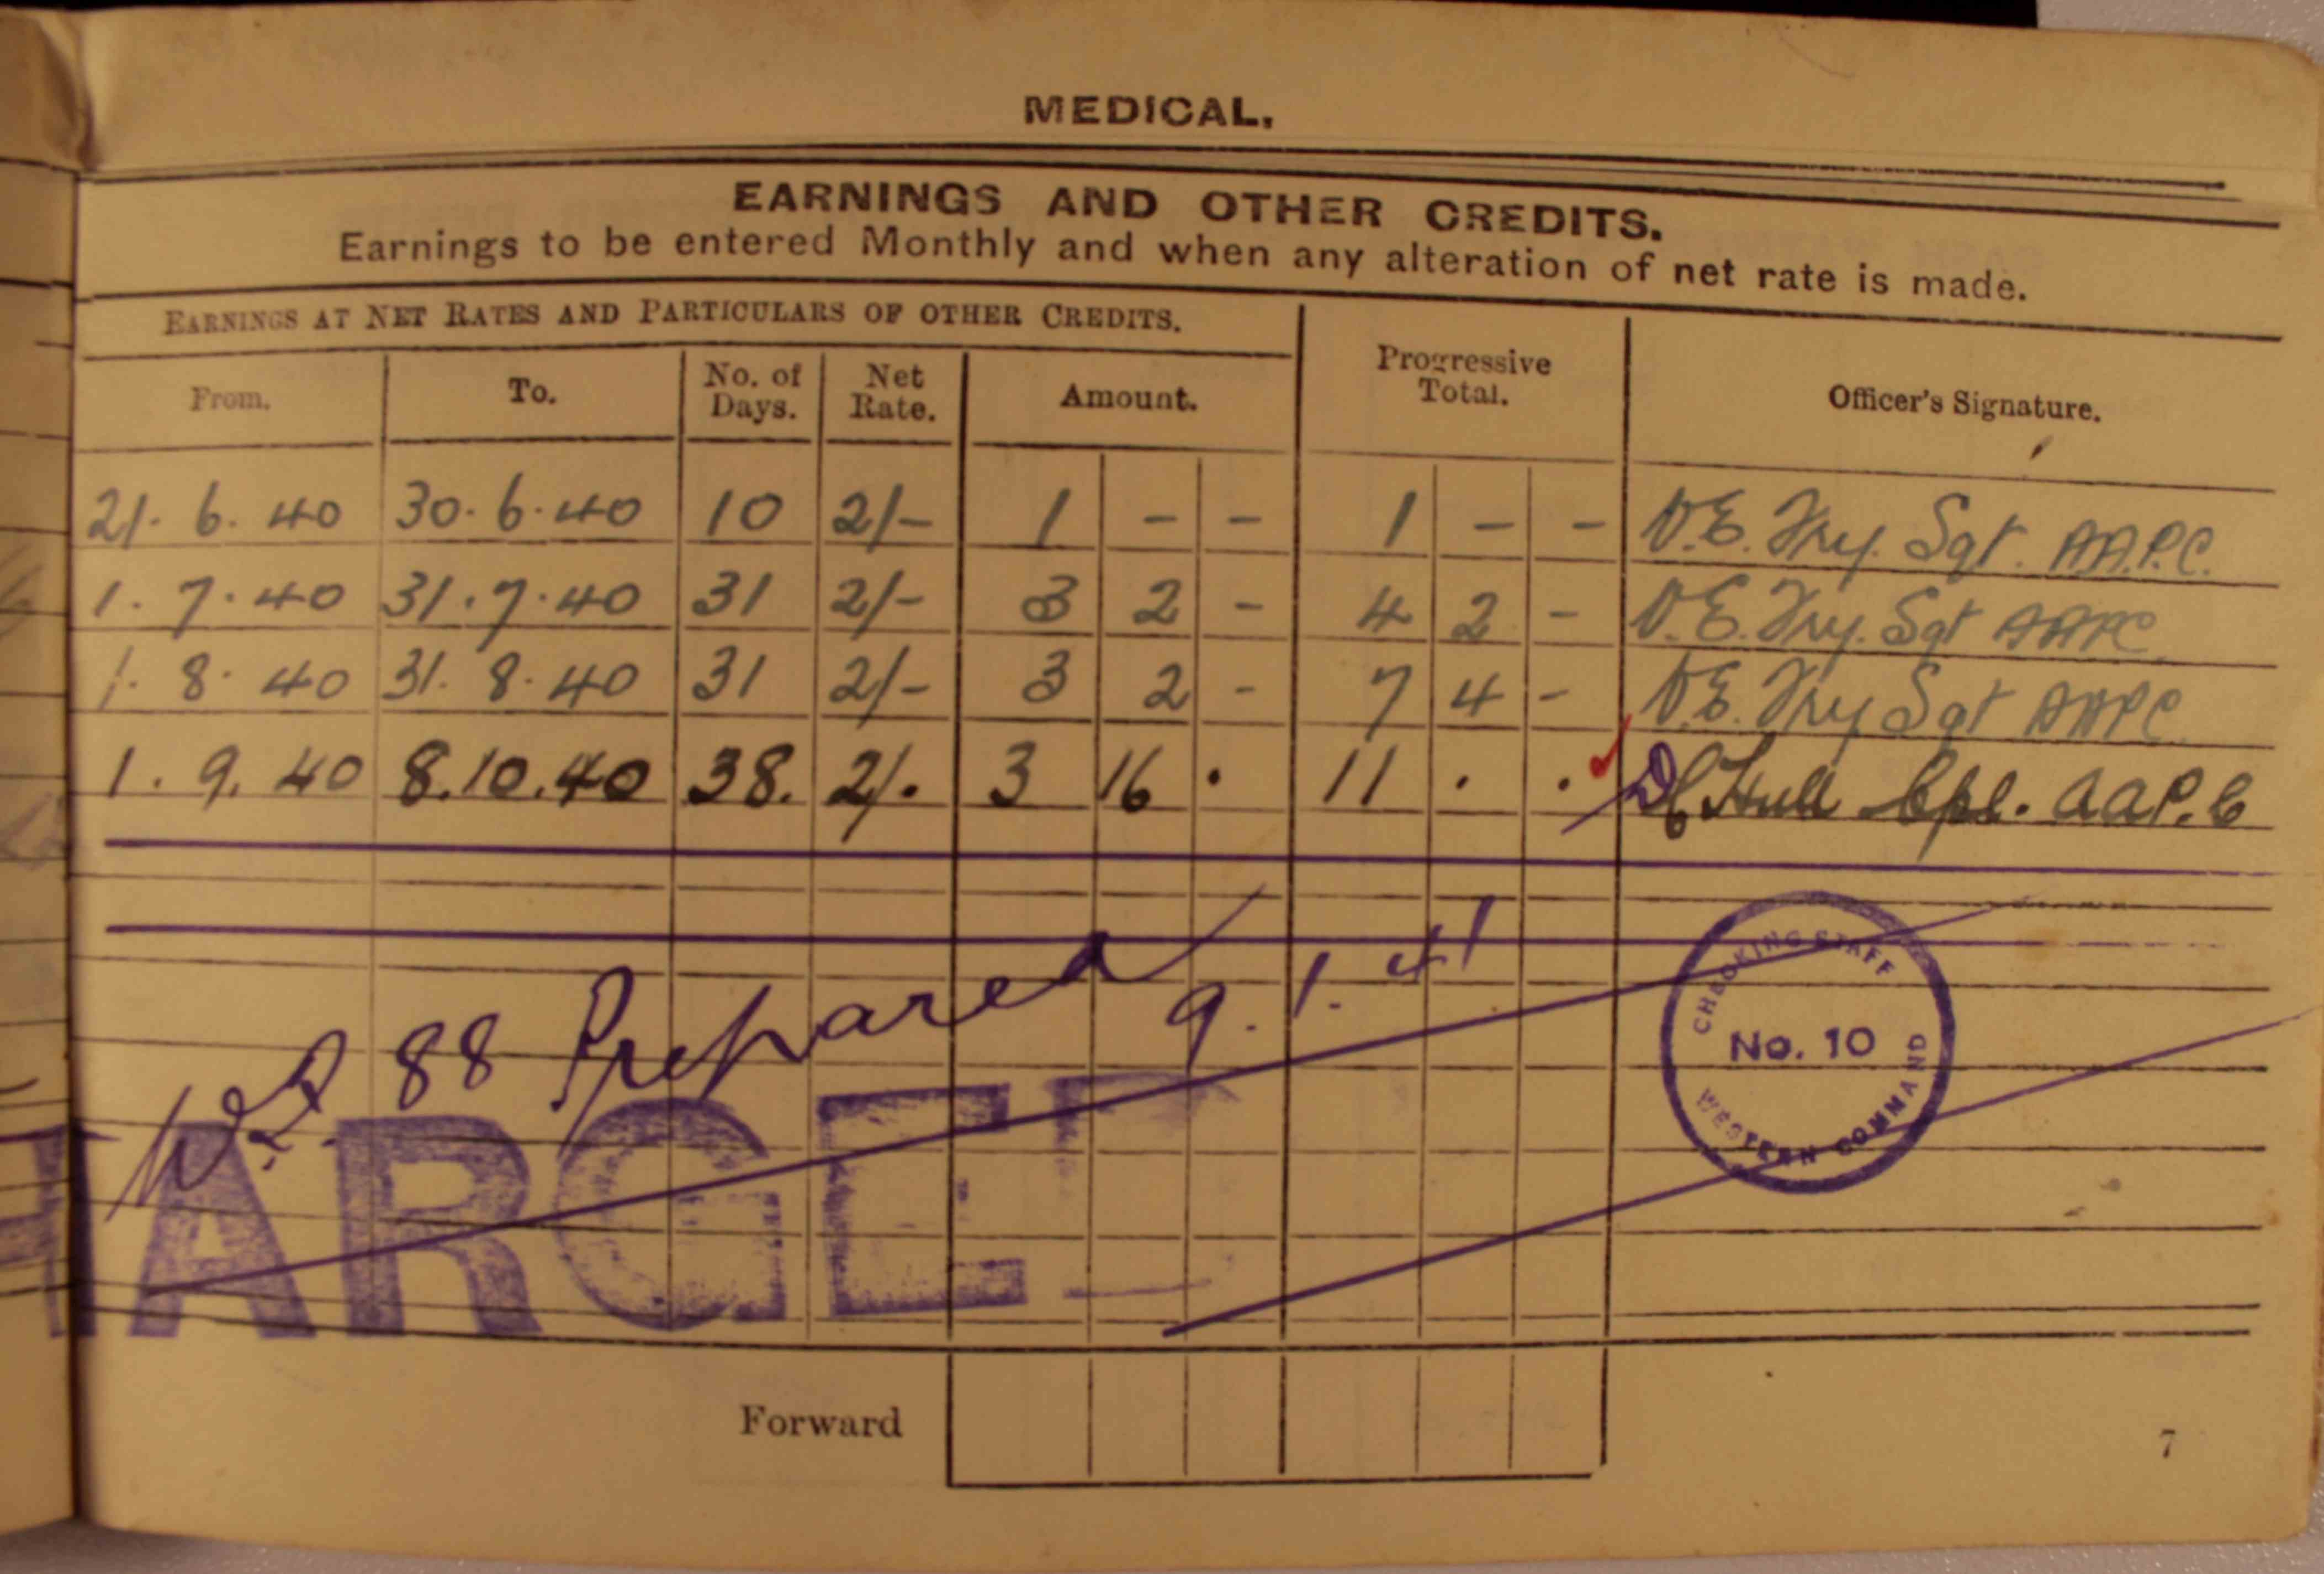 MEDICAL.
EARNINGS AND OTHER CREDITS.
Earnings to be entered Monthly and when any alteration of net rate is made.
EARNINGS AT NET RATES AND PARTICULARS OF OTHER CREDITS.
From. To. No. of Days. Net Rate. Amount. Progressive Total. Officer's Signature.
21. 6. 40 30. 6. 40 10 2/- 1 - - 1 - - Sgt. AAPC.
1. 7. 40 31. 7. 40 31 2/- 3 2 - 4 2 - Sgt AAPC
1. 8. 40 31. 8. 40 31 2/- 3 2 - 7 4 - Sgt AAPC
1. 9. 40 8.10.40 38. 2/. 3 16 . 11 . . Hull Cpl. AAP.C
88 Prepared 9. 1. 41
CHECKING STAFF
No. 10
WESTERN COMMAND
HARGED
Forward
7